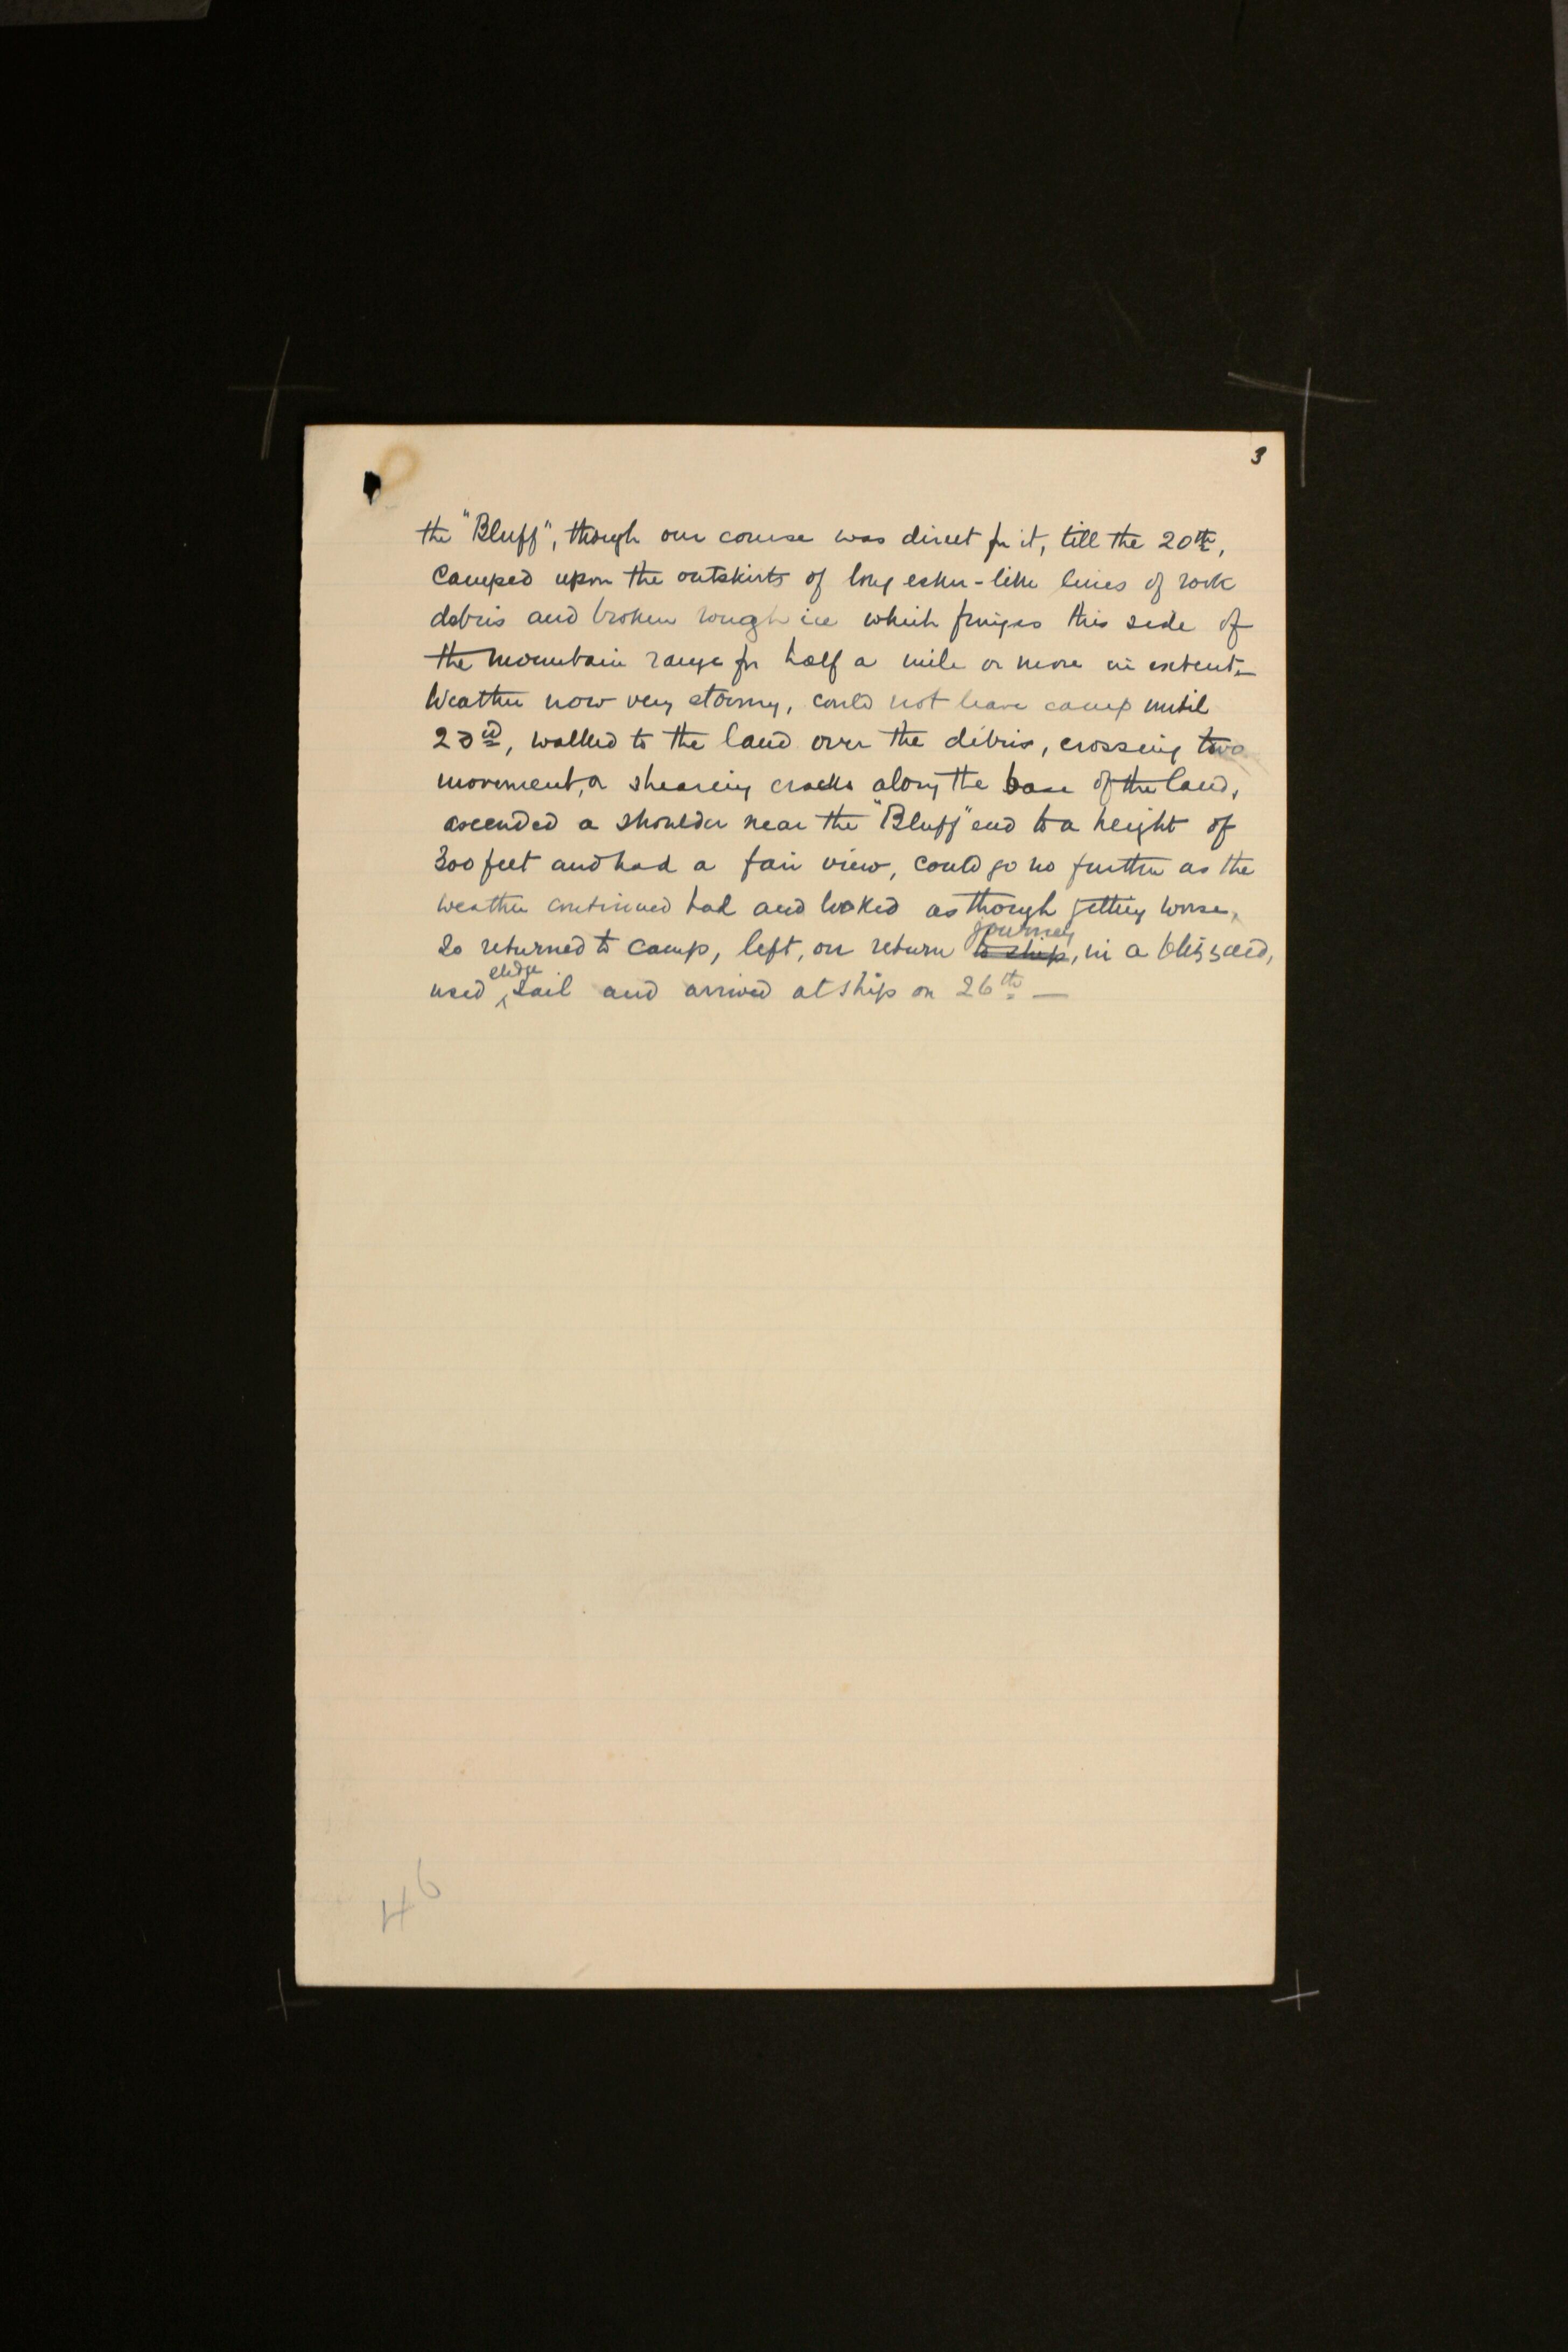 3
the "Bluff", though our course was direct for it, till the 20th,
Camped upon the outskirts of long esker-like lines of rock
debris and broken rough ice which fringes this side of
the mountain range for half a mile or more in extent.—
Weather now very stormy, could not leave camp until
23rd, walked to the land over the débris, crossing two
movement, or shearing cracks along the base of the land,
ascended a shoulder near the "Bluff" end to a height of
300 feet and had a fair view, could go no further as the
weather continued bad and looked as though getting worse,
journey
So returned to camp, left, on return to ship, in a blizzard,
sledge
used sail and arrived at ship on 26th. —
46